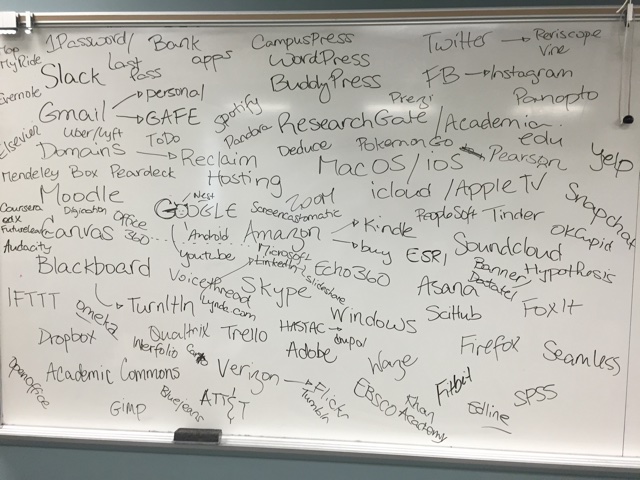 1Password/ Bank CampusPress Twitter → Periscope
MyRide Last apps WordPress Vine
Slack Pass BuddyPress FB → Instagram
Evernote → personal Prezi Panopto
Gmail → GAFE Spotify ResearchGate/Academia.
Elsevier Uber/Lyft ToDo Pandora edu
Domains → Reclaim Deduce PokemonGo Pearson Yelp
Mendeley Box Peardeck Hosting MacOS/iOS
Moodle Nest Zoom icloud/AppleTV Snapchat
Coursera Digication Office GOOGLE Screencastomatic Kindle PeopleSoft Tinder
edX 360 OKCupid
FutureLearn Canvas Android Amazon → buy ESRI Soundcloud
Audacity Youtube Microsoft
Blackboard LinkedIn Echo360 Banner Hypothesis
Voicethread Skype Slideshare Asana Datatel
IFTTT TurnItIn Lynda.com Windows SciHub FoxIt
Omeka
Dropbox Qualtrix Trello HASTAC → Drupal Firefox Seamless
Interfolio Adobe Waze
OpenOffice Academic Commons Verizon → Flickr EBSCO Khan Fitbit SPSS
Tumblr Academy Edline
GIMP Bluejeans AT&T